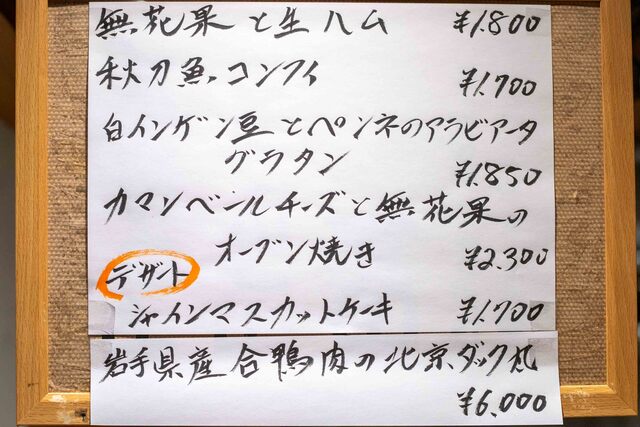 無花果と生ハム ¥1.800
秋刀魚コンフィ ¥1.700
白インゲン豆とペンネのアラビアータ
グラタン ¥1.850
カマンベールチーズと無花果の
オーブン焼き ¥2.300
デザート
シャインマスカットケーキ ¥1.700
岩手県産合鴨肉の北京ダック風
¥6.000